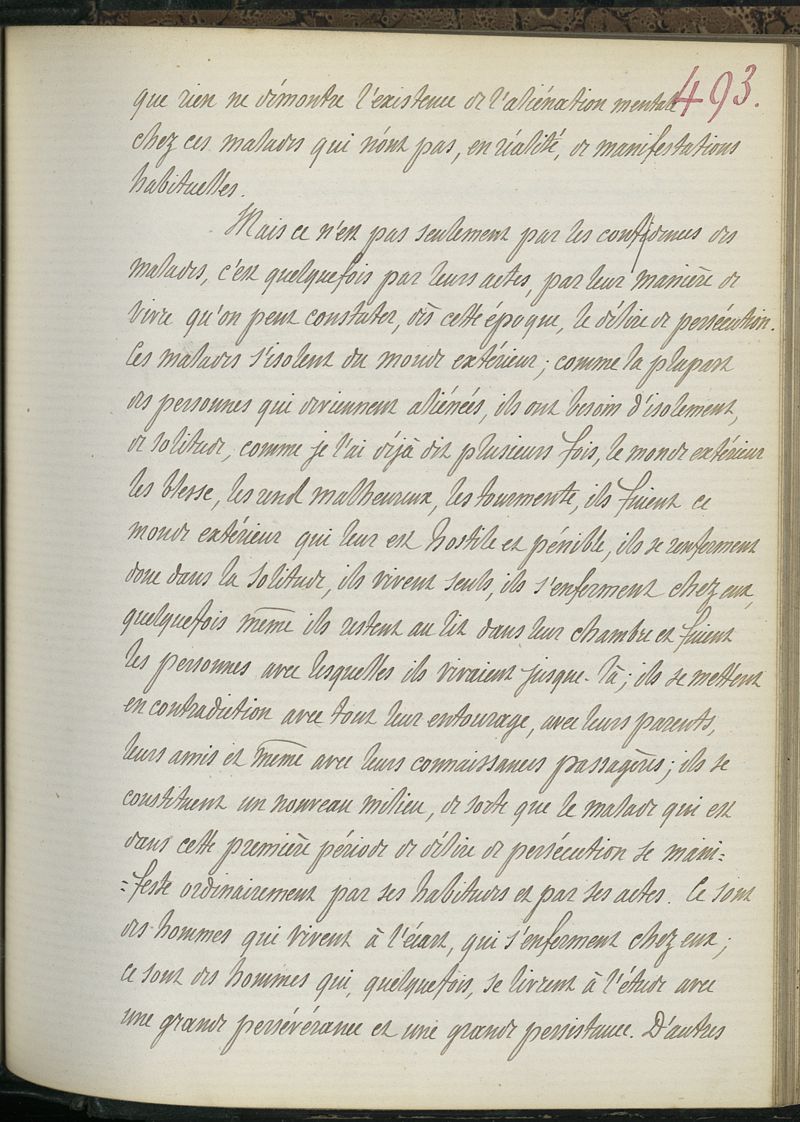 493.
que rien ne démontre l'existence de l'aliénation mentale
chez ces malades qui n'ont pas, en réalité, de manifestations
habituelles.
Mais ce n'est pas seulement par les confidences des
malades, c'est quelquefois par leurs actes, par leur manière de
vivre qu'on peut constater, dès cette époque, le délire de persécution.
Ces malades s'isolent du monde extérieur ; comme la plupart
des personnes qui deviennent aliénées, ils ont besoin d'isolement,
de solitude, comme je l'ai déjà dit plusieurs fois, le monde extérieur
les blesse, les rend malheureux, les tourmente, ils fuient ce
monde extérieur qui leur est hostile et pénible, ils se renferment
donc dans la solitude, ils vivent seuls, ils s'enferment chez eux,
quelquefois même ils restent au lit dans leur chambre et fuient
les personnes avec lesquelles ils vivaient jusque-là ; ils se mettent
en contradiction avec tout leur entourage, avec leurs parents,
leurs amis et même avec leurs connaissances passagères ; ils se
constituent un nouveau milieu, de sorte que le malade qui est
dans cette première période de délire de persécution se mani=
=feste ordinairement par ses habitudes et par ses actes. Ce sont
des hommes qui vivent à l'écart, qui s'enferment chez eux ;
ce sont des hommes qui, quelquefois, se livrent à l'étude avec
une grande persévérance et une grande persistance. D'autres